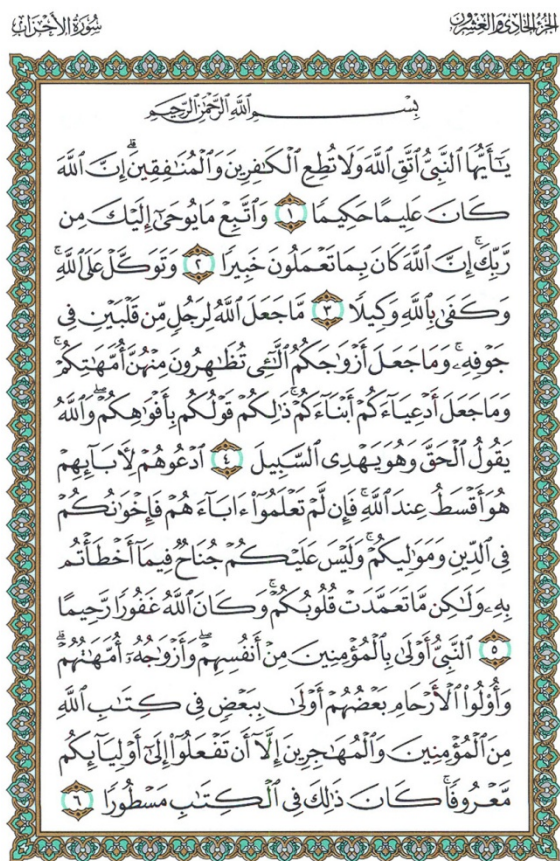 سُورَةُ الأَحْزَابِ
الجُزْءُ الحَادِي وَالعِشْرُونَ
بِسْمِ ٱللَّهِ ٱلرَّحْمَٰنِ ٱلرَّحِيمِ
يَٰٓأَيُّهَا ٱلنَّبِيُّ ٱتَّقِ ٱللَّهَ وَلَا تُطِعِ ٱلْكَٰفِرِينَ وَٱلْمُنَٰفِقِينَۗ إِنَّ ٱللَّهَ
كَانَ عَلِيمًا حَكِيمًا ١ وَٱتَّبِعْ مَا يُوحَىٰٓ إِلَيْكَ مِن
رَّبِّكَۚ إِنَّ ٱللَّهَ كَانَ بِمَا تَعْمَلُونَ خَبِيرًا ٢ وَتَوَكَّلْ عَلَى ٱللَّهِۚ
وَكَفَىٰ بِٱللَّهِ وَكِيلًا ٣ مَّا جَعَلَ ٱللَّهُ لِرَجُلٍ مِّن قَلْبَيْنِ فِى
جَوْفِهِۦۚ وَمَا جَعَلَ أَزْوَٰجَكُمُ ٱلَّٰٓـِٔى تُظَٰهِرُونَ مِنْهُنَّ أُمَّهَٰتِكُمْۚ
وَمَا جَعَلَ أَدْعِيَآءَكُمْ أَبْنَآءَكُمْۚ ذَٰلِكُمْ قَوْلُكُم بِأَفْوَٰهِكُمْۖ وَٱللَّهُ
يَقُولُ ٱلْحَقَّ وَهُوَ يَهْدِى ٱلسَّبِيلَ ٤ ٱدْعُوهُمْ لِأَبَآئِهِمْ
هُوَ أَقْسَطُ عِندَ ٱللَّهِۚ فَإِن لَّمْ تَعْلَمُوٓا۟ ءَابَآءَهُمْ فَإِخْوَٰنُكُمْ
فِى ٱلدِّينِ وَمَوَٰلِيكُمْۚ وَلَيْسَ عَلَيْكُمْ جُنَاحٌ فِيمَآ أَخْطَأْتُم
بِهِۦ وَلَٰكِن مَّا تَعَمَّدَتْ قُلُوبُكُمْۚ وَكَانَ ٱللَّهُ غَفُورًا رَّحِيمًا
٥ ٱلنَّبِيُّ أَوْلَىٰ بِٱلْمُؤْمِنِينَ مِنْ أَنفُسِهِمْۖ وَأَزْوَٰجُهُۥٓ أُمَّهَٰتُهُمْۗ
وَأُو۟لُوا۟ ٱلْأَرْحَامِ بَعْضُهُمْ أَوْلَىٰ بِبَعْضٍ فِى كِتَٰبِ ٱللَّهِ
مِنَ ٱلْمُؤْمِنِينَ وَٱلْمُهَٰجِرِينَ إِلَّآ أَن تَفْعَلُوٓا۟ إِلَىٰٓ أَوْلِيَآئِكُم
مَّعْرُوفًاۚ كَانَ ذَٰلِكَ فِى ٱلْكِتَٰبِ مَسْطُورًا ٦